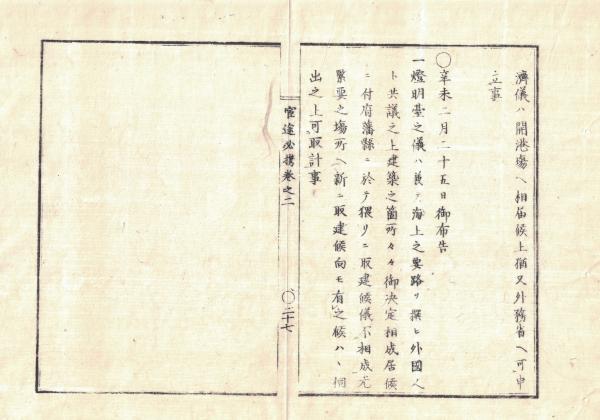 濟儀ハ開港場ヘ相届候上猶又外務省ヘ可申
立事
○辛未二月二十五日御布告
一燈明臺之儀ハ兼テ海上之要路ヲ撰ヒ外國人
ト共議之上建築之箇所々々御决定相成居候
ニ付府藩縣ニ於テ猥リニ取建候儀不相成尤
緊要之塲所ヘ新ニ取建候向モ有之候ハヽ伺
出之上可取計事
官途必携卷之二
○二十七